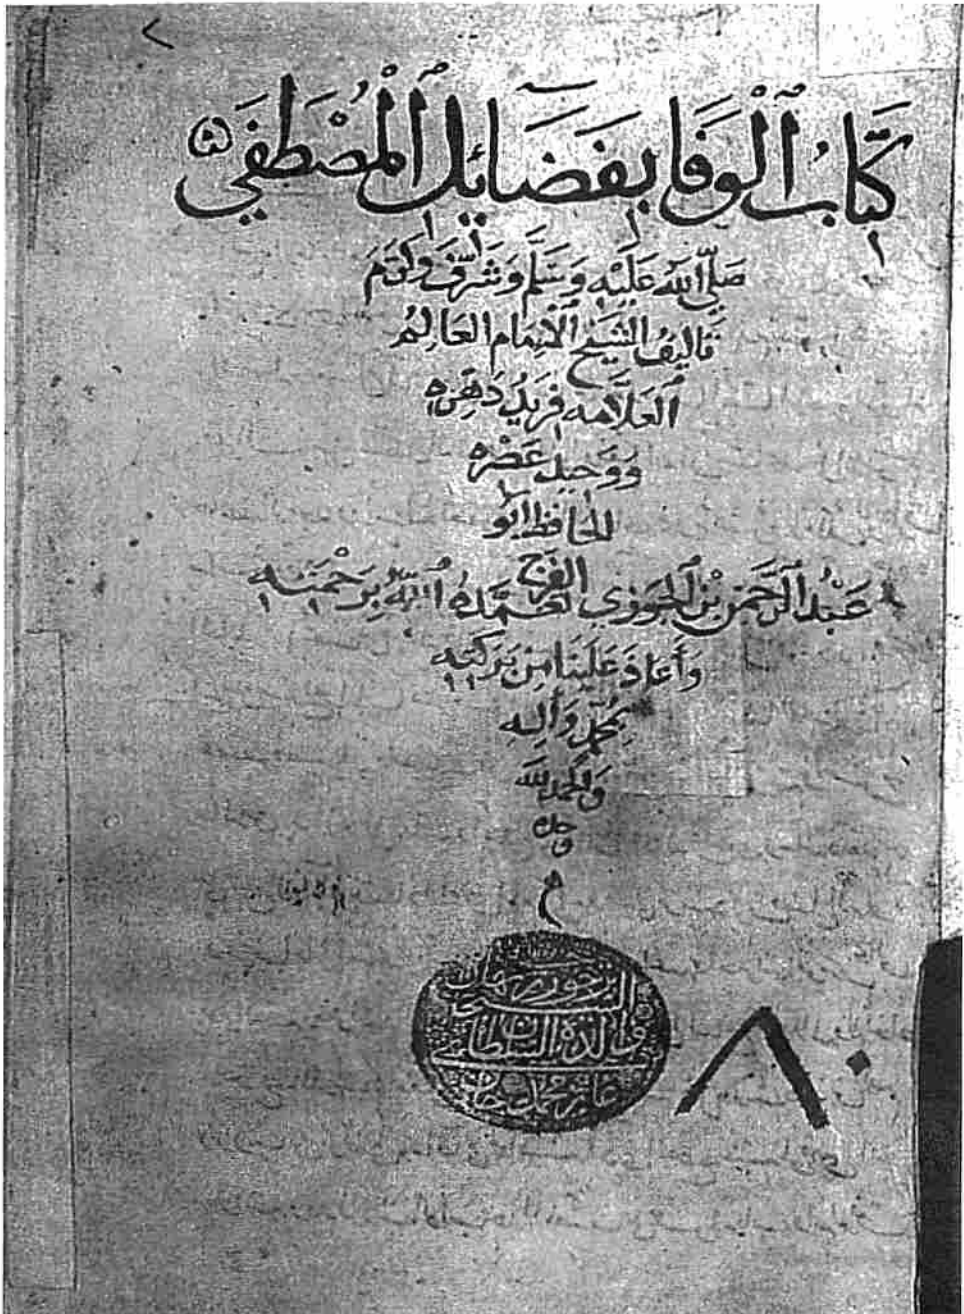 كِتَابُ ٱلْوَفَا بِفَضَائِلِ ٱلْمُصْطَفَي
صَلَّي اللهُ عَلَيْهِ وَسَلَّمَ وَشَرَّفَ وَكَرَّمَ
تَاليفُ الشَيْخ الْامَام العَالِمُ
العَلاَّمه فَرِيدُ دَهْرِه
وَوَحيِد عَصْرِه
الحَافِظ ابُو
الفَرَج
عَبْدُ الرَّحمَن بْن الْجَوْزِي تَغمَّدهُ اللهُ بِرَحْمَتِه
وَأَعَادَ عَلَينَا مِن بَرَكَتِه
بِمُحَمَّدٍ وَآلِهِ
وَالْحَمْدُ لله
وحده
م
والدة السلطان
٨٠